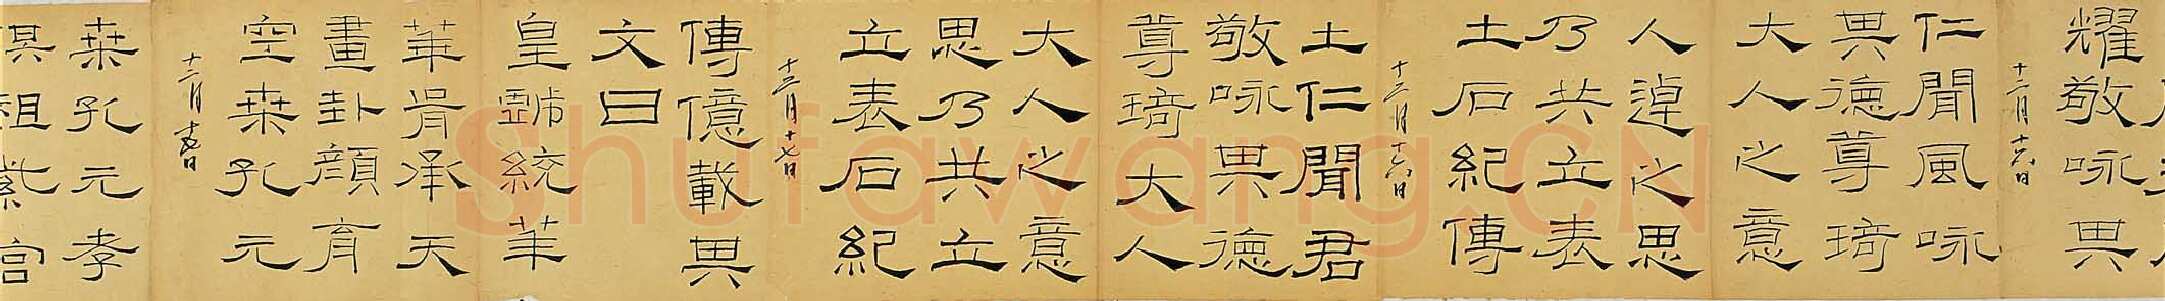 耀敬咏其
十二月十六日
仁聞風咏
其德尊琦
大人之意
人逴之思
乃共立表
土石紀傳
十二月十六日
士仁聞君
敬咏其德
尊琦大人
大人之意
思乃共立
立表石紀
十二月十七日
傳億載其
文曰
皇戲統華
華胥承天
畫卦顏育
空桑孔元
十二月
桑孔元孝
俱祖紫宮
Shufawang.CN